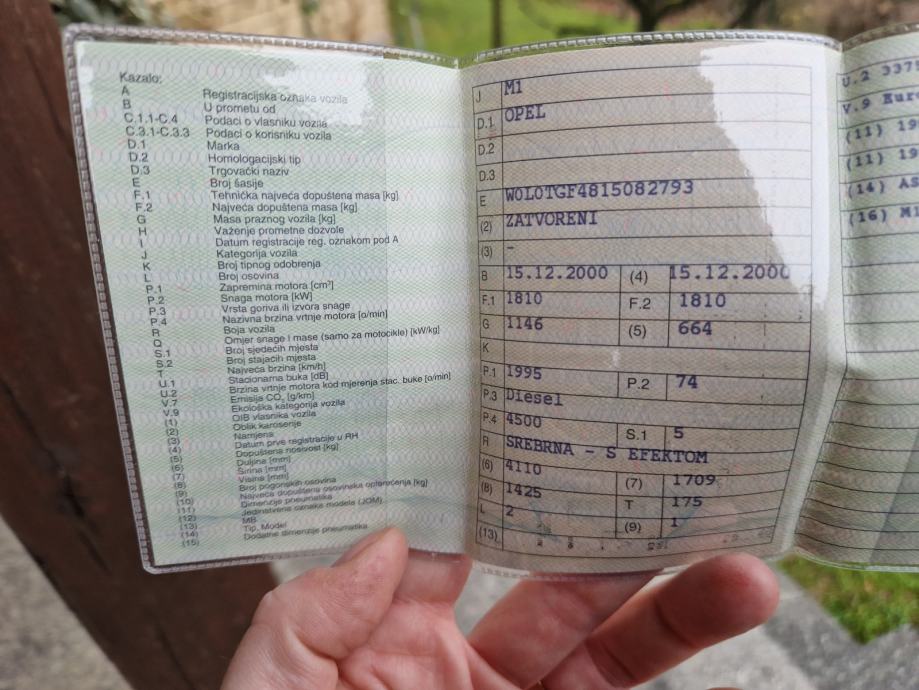 Kazalo:
A Registracijska oznaka vozila
B U prometu od
C.1.1-C.4 Podaci o vlasniku vozila
C.3.1-C.3.3 Podaci o korisniku vozila
D.1 Marka
D.2 Homologacijski tip
D.3 Trgovački naziv
E Broj šasije
F.1 Tehnička najveća dopuštena masa [kg]
F.2 Najveća dopuštena masa [kg]
G Masa praznog vozila [kg]
H Važenje prometne dozvole
I Datum registracije reg. oznakom pod A
J Kategorija vozila
K Broj tipnog odobrenja
L Broj osovina
P.1 Zapremina motora [cm³]
P.2 Snaga motora [kW]
P.3 Vrsta goriva ili izvora snage
P.4 Nazivna brzina vrtnje motora [o/min]
R Boja vozila
Q Omjer snage i mase (samo za motocikle) [kW/kg]
S.1 Broj sjedećih mjesta
S.2 Broj stajaćih mjesta
T Najveća brzina [km/h]
U.1 Stacionarna buka [dB]
U.2 Brzina vrtnje motora kod mjerenja stac. buke [o/min]
V.7 Emisija CO₂ [g/km]
V.9 Ekološka kategorija vozila
(1) OIB vlasnika vozila
(2) Oblik karoserije
(3) Namjena
(4) Datum prve registracije u RH
(5) Dopuštena nosivost [kg]
(6) Duljina [mm]
(7) Širina [mm]
(8) Visina [mm]
(9) Broj pogonskih osovina
(10) Najveća dopuštena osovinska opterećenja [kg]
(11) Dimenzije pneumatika
(12) Jedinstvena oznaka modela (JOM)
(13) MB
(14) Tip, Model
(15) Dodatne dimenzije pneumatika
J M1
D.1 OPEL
D.2
D.3
E W0L0TGF4815082793
(2) ZATVORENI
(3) -
B 15.12.2000 (4) 15.12.2000
F.1 1810 F.2 1810
G 1146 (5) 664
K
P.1 1995 P.2 74
P.3 Diesel
P.4 4500 S.1 5
R SREBRNA - S EFEKTOM
(6) 4110 (7) 1709
(8) 1425 T 175
L 2 (9) 1
(13)
U.2 337
V.9 Eur
(11) 19
(11) 19
(14) AS
(16) M